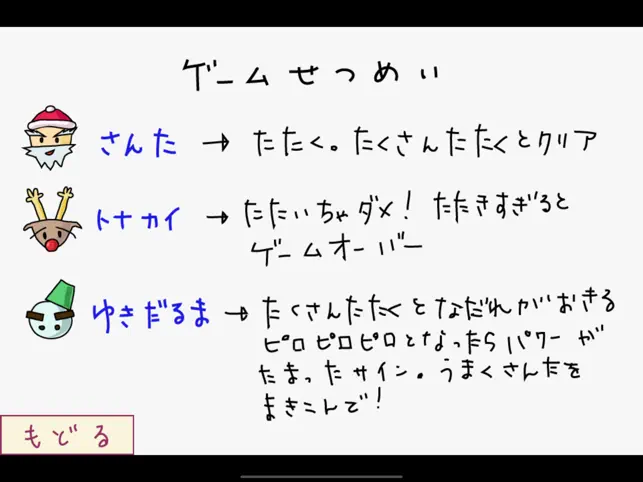 ゲームせつめい
さんた → たたく。たくさんたたくとクリア
トナカイ → たたいちゃダメ! たたきすぎると
ゲームオーバー
ゆきだるま → たくさんたたくとなだれがおきる
ピロピロピロとなったらパワーが
たまったサイン。うまくさんたを
まきこんで!
もどる